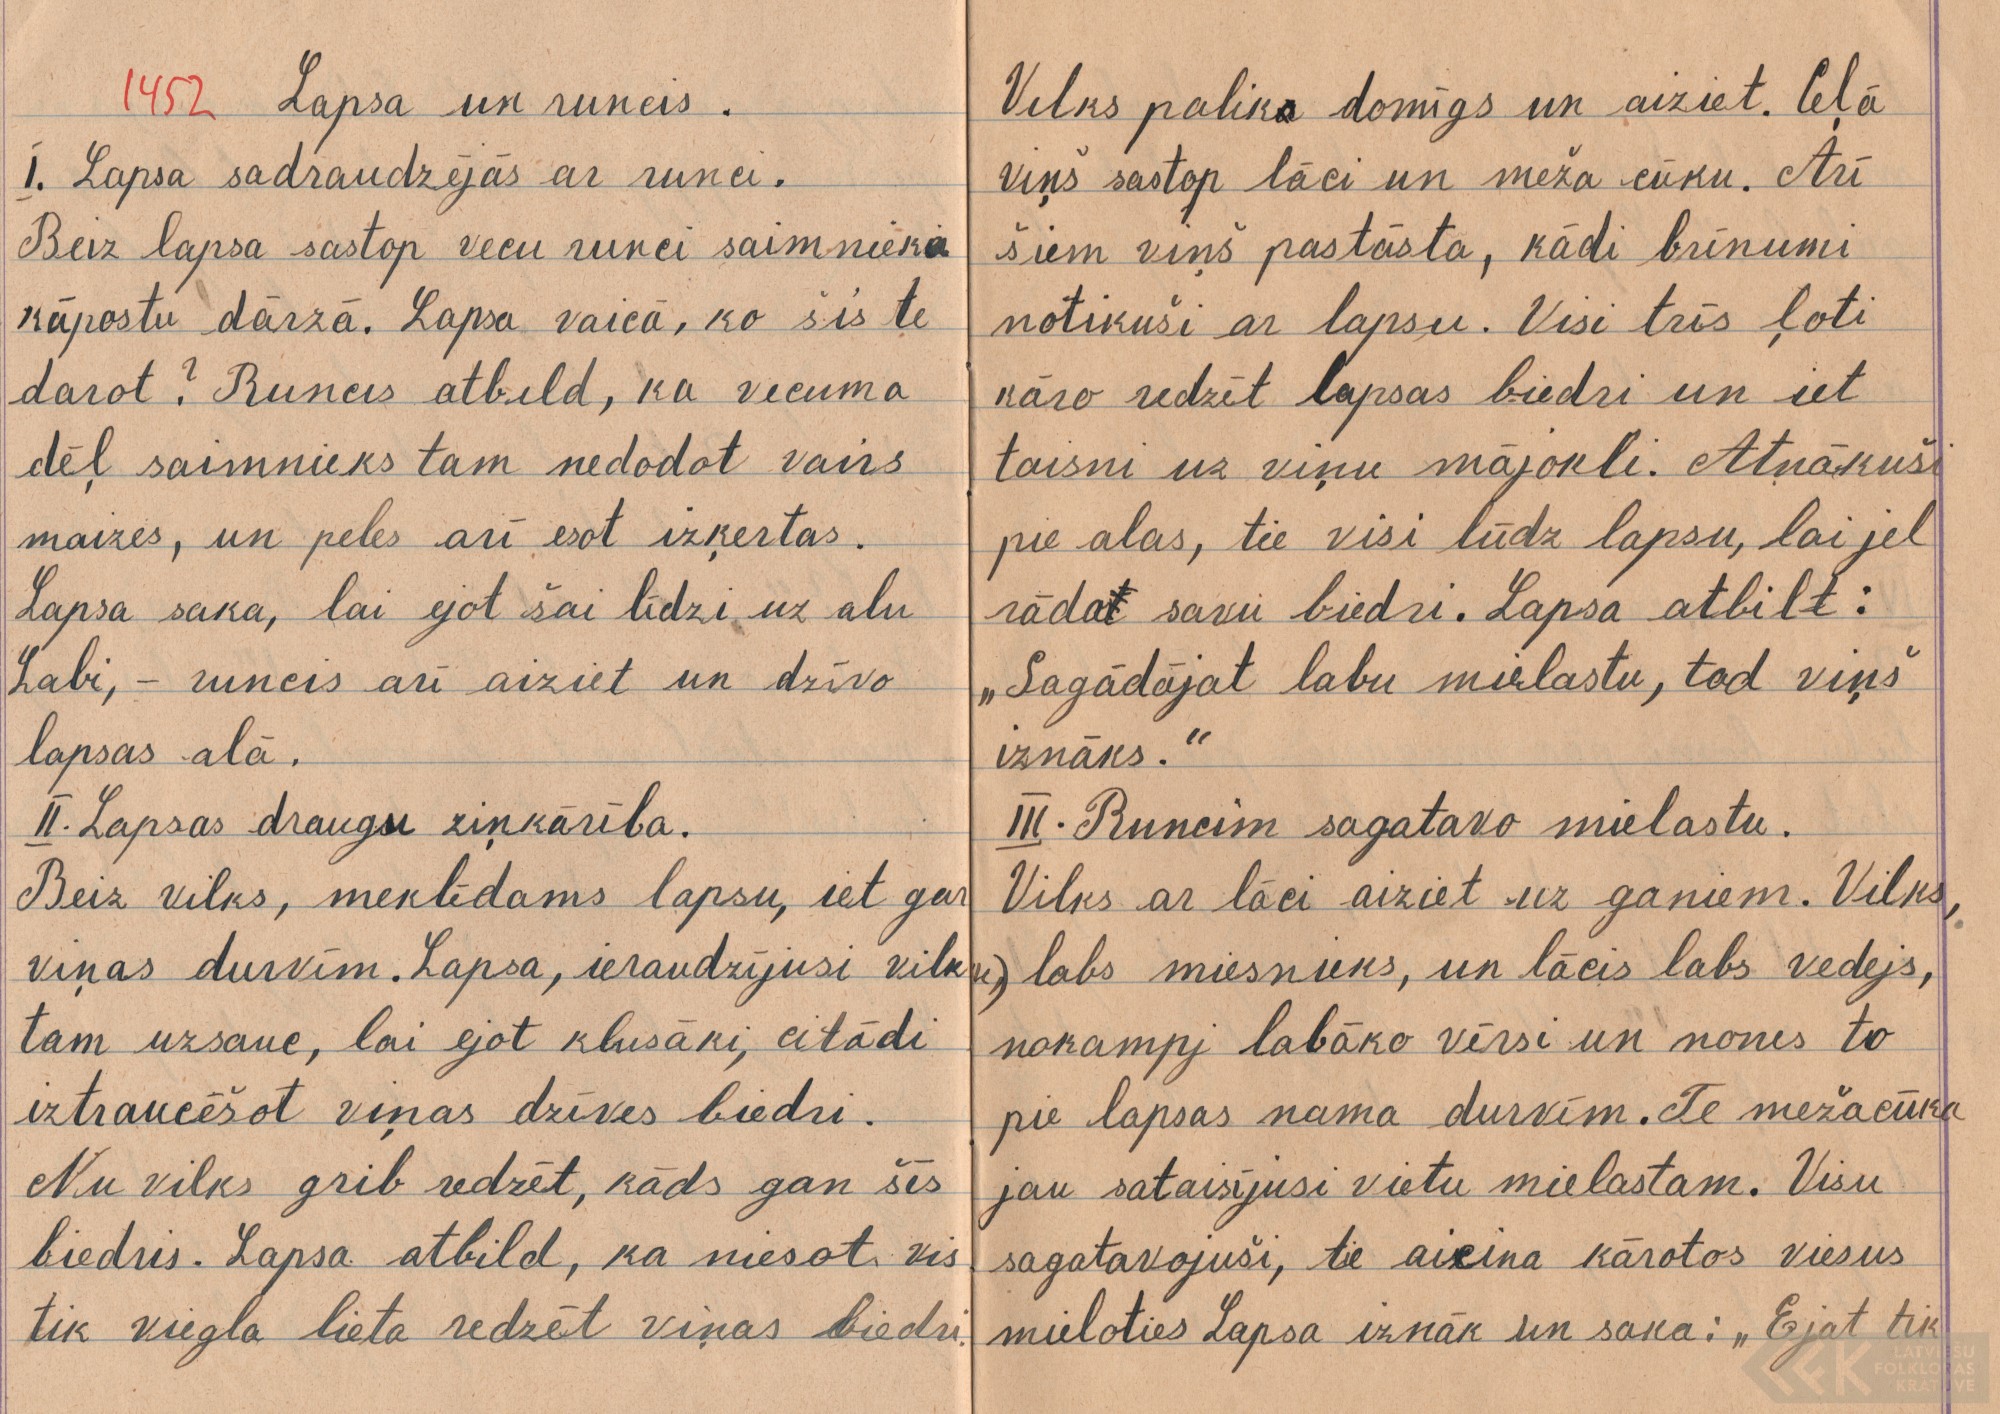 1452 Lapsa un runcis.
I. Lapsa sadraudzējās ar runci.
Beiz lapsa sastop vecu runci saimnieka
kāpostu dārzā. Lapsa vaicā, ko šis te
darot? Runcis atbild, ka vecuma
dēļ saimnieks tam nedodot vairs
maizes, un peles arī esot izķertas.
Lapsa saka, lai ejot šai līdzi uz alu
Labi, - runcis arī aiziet un dzīvo
lapsas alā.
II. Lapsas draugu ziņkārība.
Beiz vilks, meklēdams lapsu, iet gar
viņas durvīm. Lapsa, ieraudzījusi vilku,
tam uzsauc, lai ejot klusāki, citādi
iztraucēšot viņas dzīves biedri.
Nu vilks grib redzēt, kāds gan šis
biedris. Lapsa atbild, ka niesot vis
tik viegla lieta redzēt viņas biedri.
Vilks paliks domīgs un aiziet. Ceļā
viņš sastop lāci un meža cūku. Arī
šiem viņš pastāsta, kādi brīnumi
notikuši ar lapsu. Visi trīs ļoti
kāro redzēt lapsas biedri un iet
taisni uz viņu mājokli. Atnākuši
pie alas, tie visi lūdz lapsu, lai jel
rādot savu biedri. Lapsa atbilt:
„Sagādājat labu mielastu, tad viņš
iznāks.“
III. Runcim sagatavo mielastu.
Vilks ar lāci aiziet uz ganiem. Vilks,
labs miesnieks, un lācis labs vedejs,
nokampj labāko vērsi un nones to
pie lapsas nama durvīm. Te mežacūka
jau sataisījusi vietu mielastam. Visu
sagatavojuši, tie aicina kārotos viesus
mieloties Lapsa iznāk un saka: „Ejat tik
LATVIEŠU
FOLKLORAS
KRĀTUVE